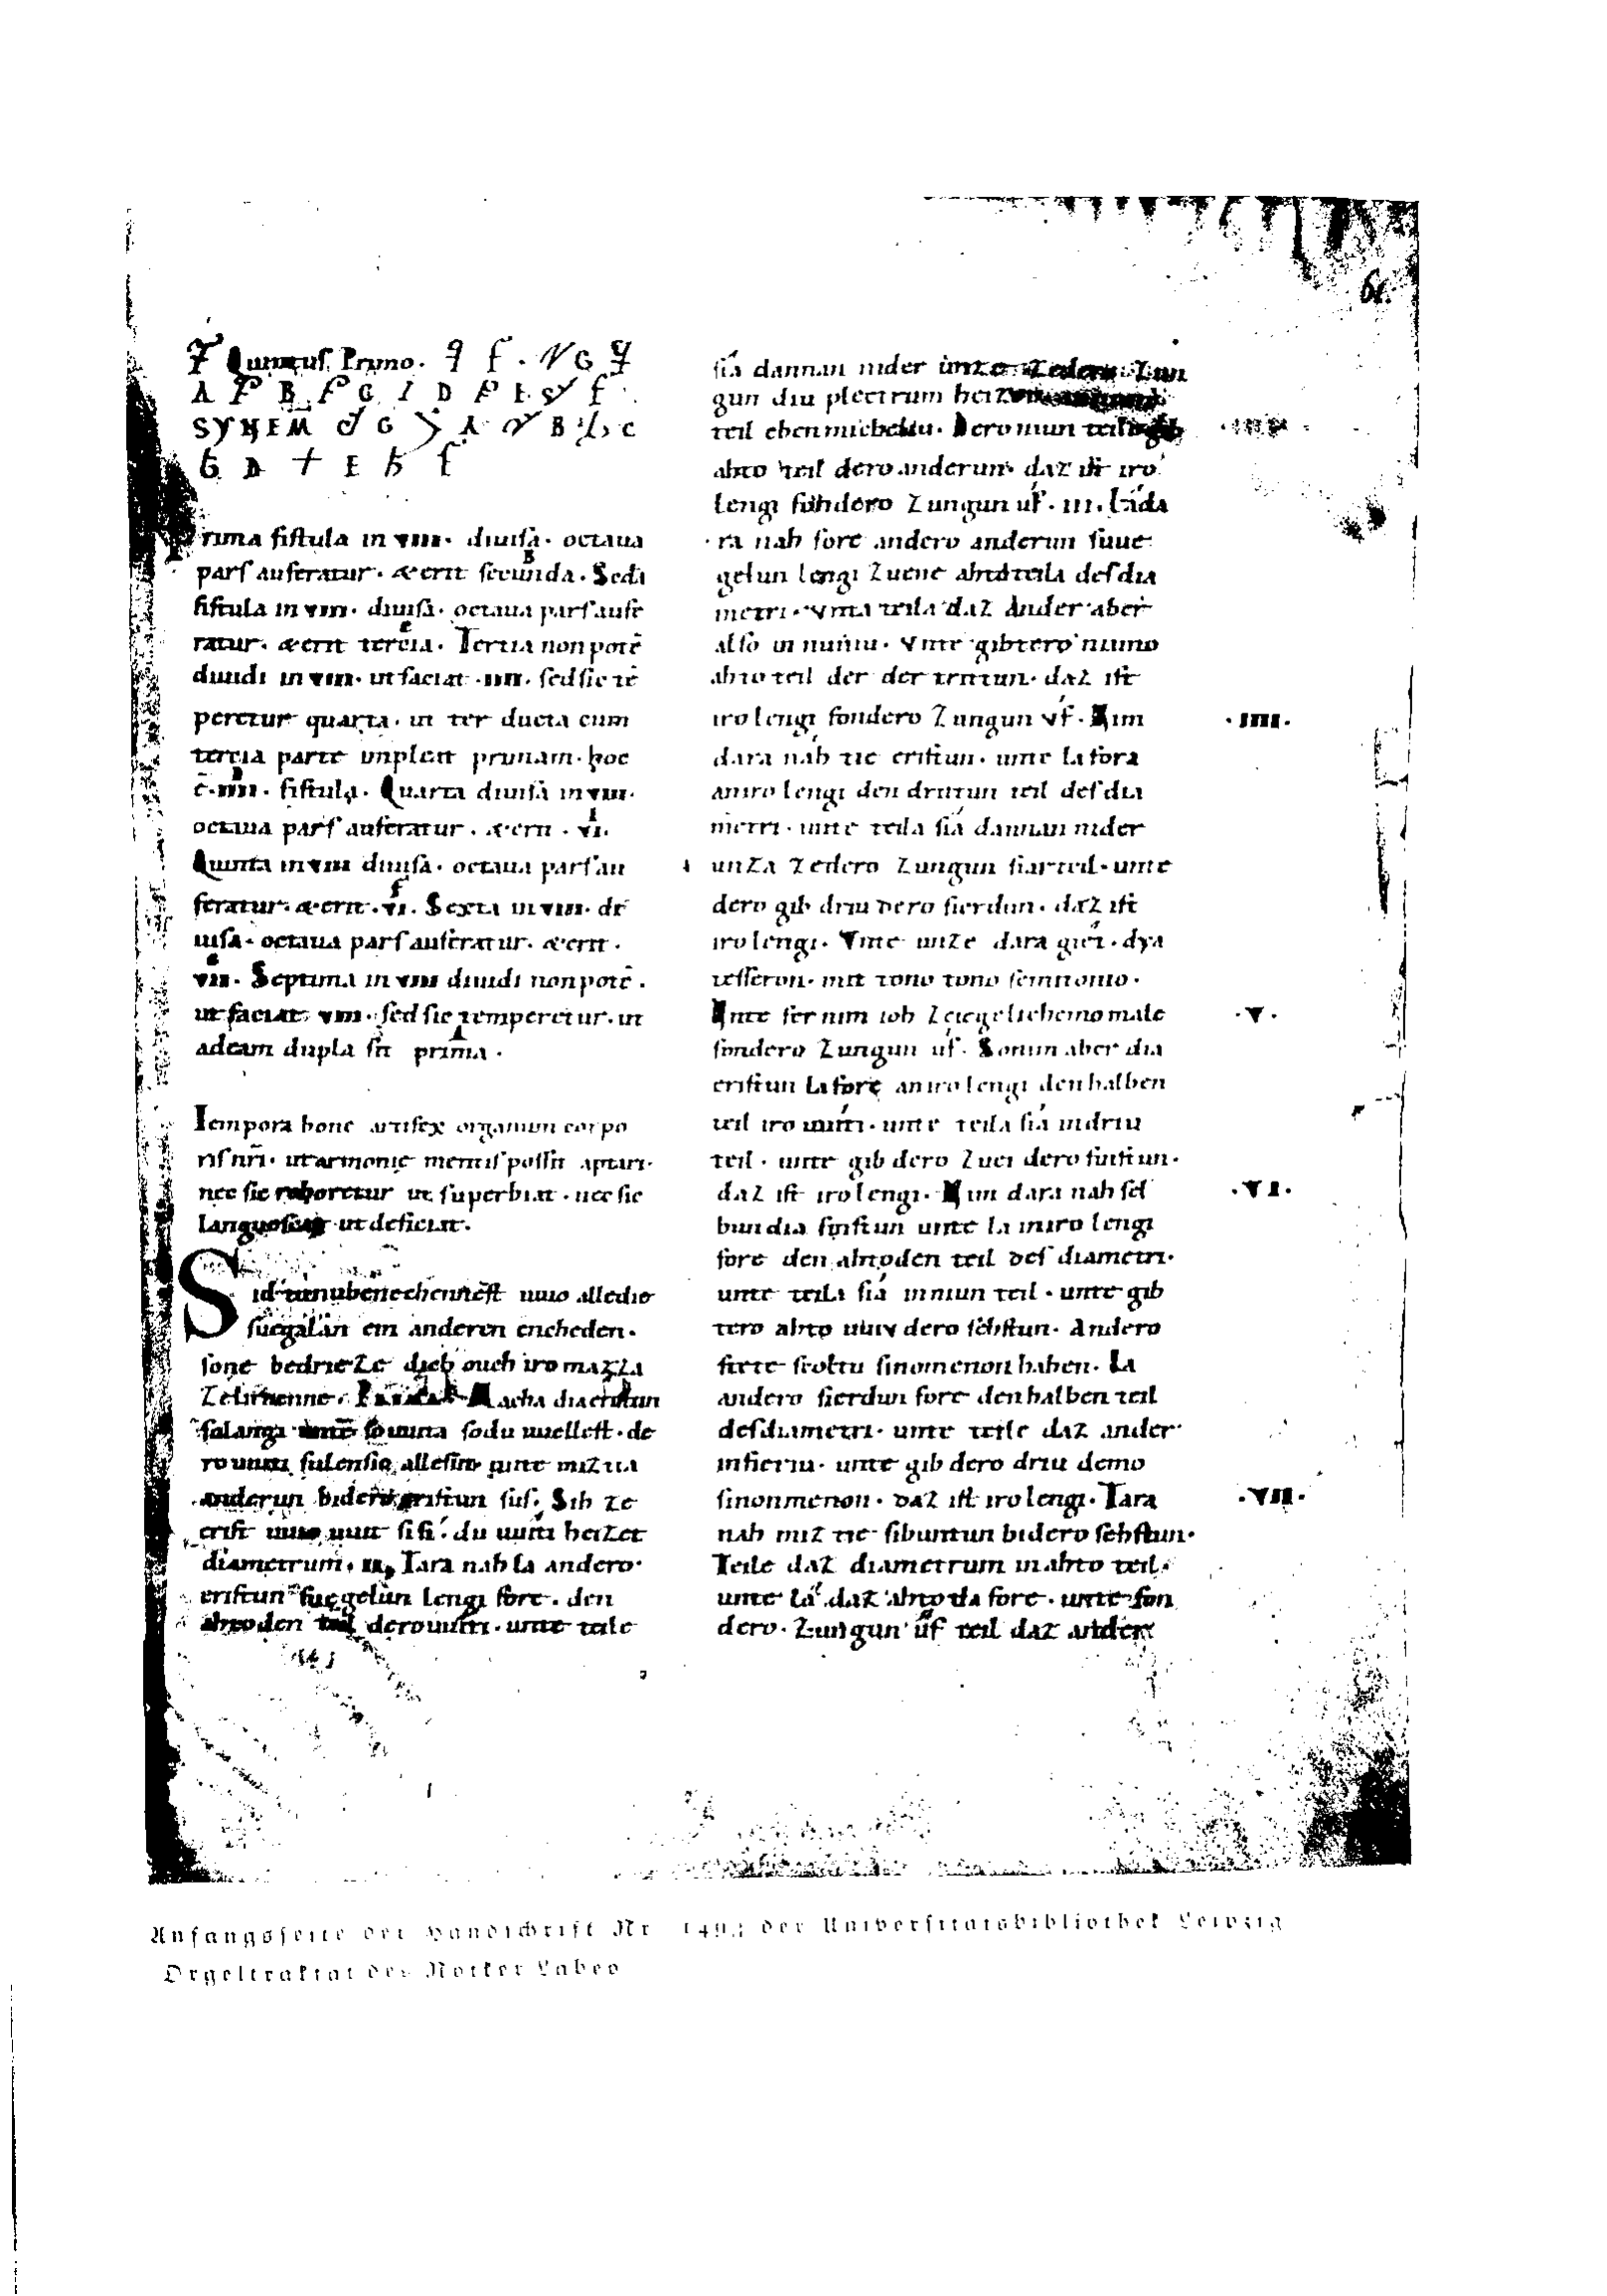 61.
Quintus Primo.
A B G D E f
SYNEM G A B C
D E f
Prima fistula in VIII. diuisa. octaua
pars auferatur. & erit secunda. Seda
fistula in VIII. diuisa. octaua pars aufe
ratur. & erit tercia. Tertia non potē
diuidi in VIII. ut faciat .IIII. sed sic tē
peretur quarta. ut ter ducta cum
tercia parte impleat primam. hoc
ē .IIII. fistula. Quarta diuisa in VIII.
octaua pars auferatur. & erit . VI.
Quinta in VIII diuisa. octaua pars au
feratur. & erit .VI. Sexta in VIII. di
uisa. octaua pars auferatur. & erit .
VII. Septima in VIII diuidi non potē .
ut faciat VIII. sed sic temperetur. ut
ad eam dupla sit prima .
Tempora bone artifex organum corpo
ris nrī. ut armonię mentis possit aptari.
nec sic roboretur ut superbiat. nec sic
ut deficiat.
Sid uuio alledie
suegalan ein anderen encheden.
sone bedrieze dich ouch iro mazza
Macha dia eristun
so langa so uuita so du uuellest. de
ro uuiti sulen sia alle sin unte miz tia
anderun bidero eristun sus. Sih ze
erist uuio uuit si si. du uuiti heizet
diametrum. II. Tara nah la andero
eristun suegelun lengi fore. den
ahtoden teil dero uuiti. unte teile
sia dannan nider unze zedero zun
gun diu plectrum heizet
teil ebenmicheliu. Dero niun teilo gib
ahto teil dero anderun. daz ist iro
lengi sundero zungun uf. III. La da
ra nah fore andero anderun suue
gelun lengi zuene ahtodteila des dia
metri. Vnta teila daz ander aber
also in nuniu. Vnte gib tero niuno
ahto teil der der trittun. daz ist
iro lengi sondero zungun vf. Nim
.IIII.
dara nah tie eristun. unte la fora
an iro lengi den drittun teil des dia
metri. unte teila sia dannan nider
unza zedero zungun fiar teil. unte
dero gib driu dero fierdun. daz ist
iro lengi. Vnte unze dara giet. dya
tesseron. mit tono tono semitonio.
Vnte fernim ioh zeiegelichemo male
.V.
sondero zungun uf. Sonim aber dia
eristun la fore an iro lengi den halben
teil iro uuiti. unte teila sia in driu
teil. unte gib dero zuei dero finftun.
daz ist iro lengi. Nim dara nah sel
.VI.
bun dia finftun unte la in iro lengi
fore den ahtoden teil des diametri.
unte teila sia in niun teil. unte gib
tero ahto dero sehstun. Andero
fierte scoltu sinomenon haben. La
andero fierdun fore den halben teil
des diametri. unte teile daz ander
in fieriu. unte gib dero driu demo
sinonmenon. daz ist iro lengi. Tara
.VII.
nah miz tie sibuntun bidero sehstun.
Teile daz diametrum in ahto teil.
unte la daz ahtoda fore. unte son
dero. zungun uf teil daz ander
Anfangsseite der Handschrift Nr. 1493 der Universitätsbibliothek Leipzig
Orgeltraktat des Notker Labeo